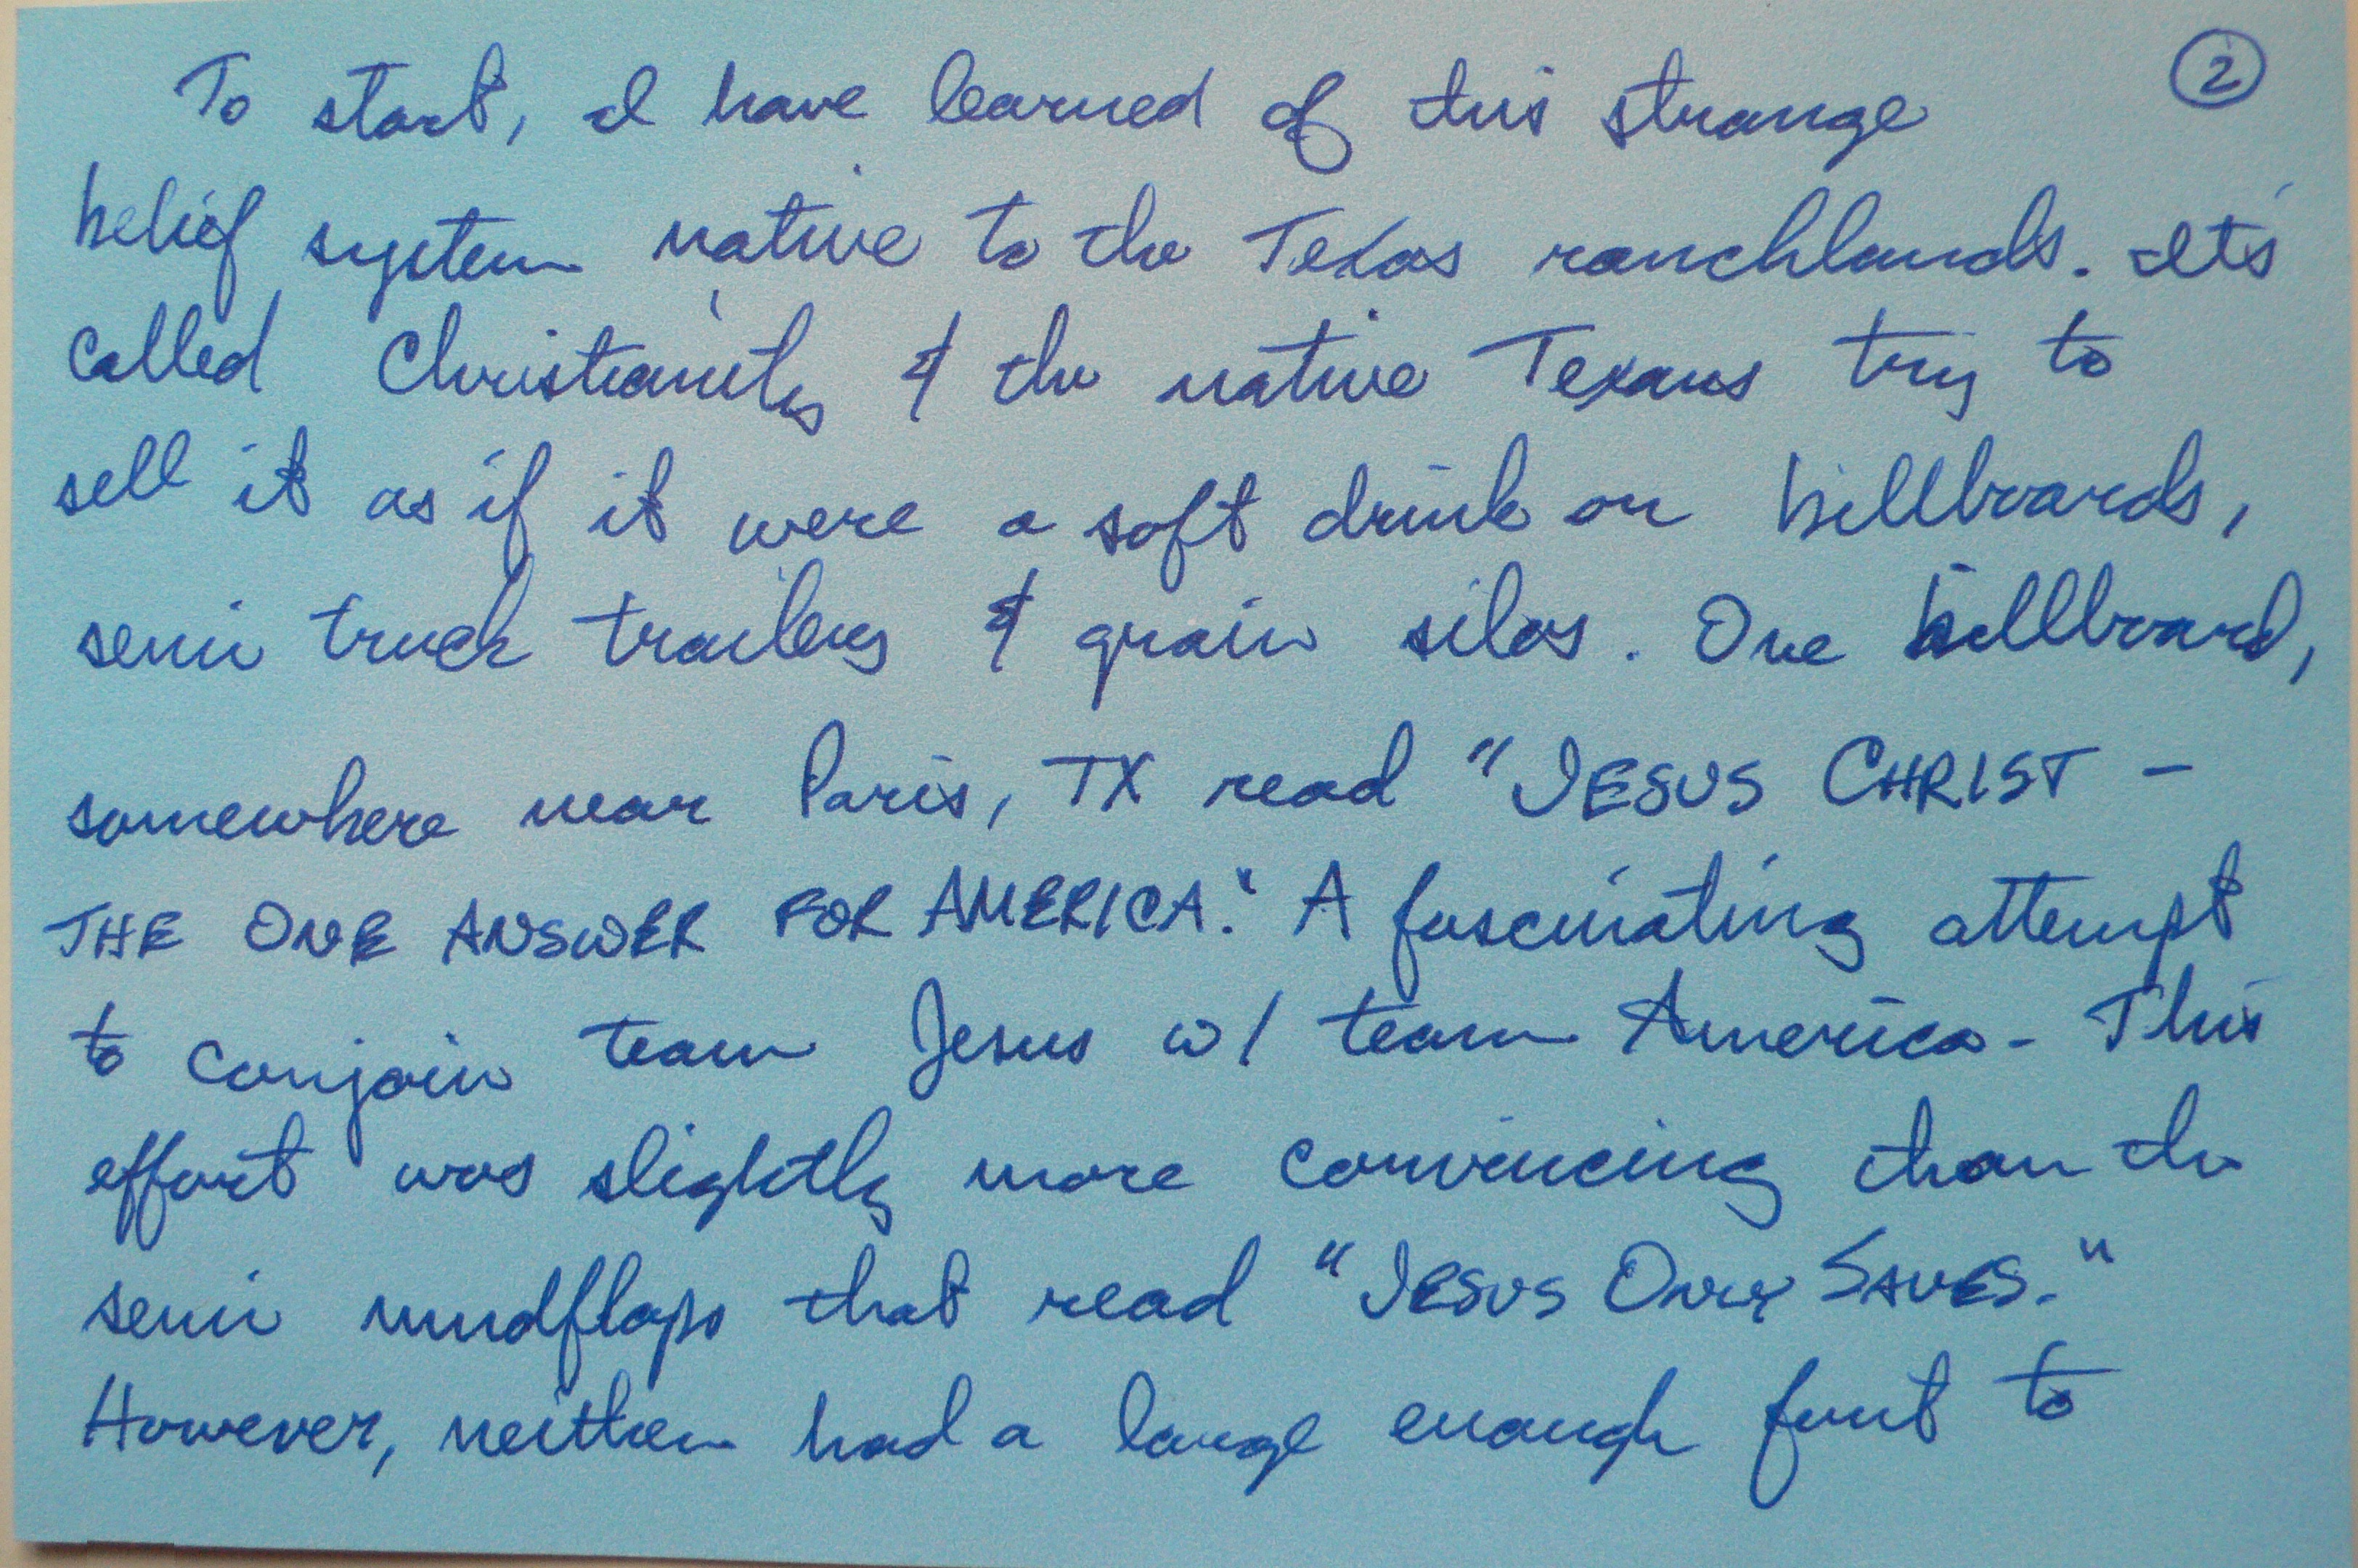 To start, I have learned of this strange ②
belief system native to the Texas ranchlands. It's
called Christianity & the native Texans try to
sell it as if it were a soft drink on billboards,
semi truck trailers & grain silos. One billboard,
somewhere near Paris, TX read "JESUS CHRIST -
THE ONE ANSWER FOR AMERICA." A fascinating attempt
to conjoin team Jesus w/ team America - This
effort was slightly more convincing than the
semi mudflaps that read "JESUS ONLY SAVES."
However, neither had a large enough font to